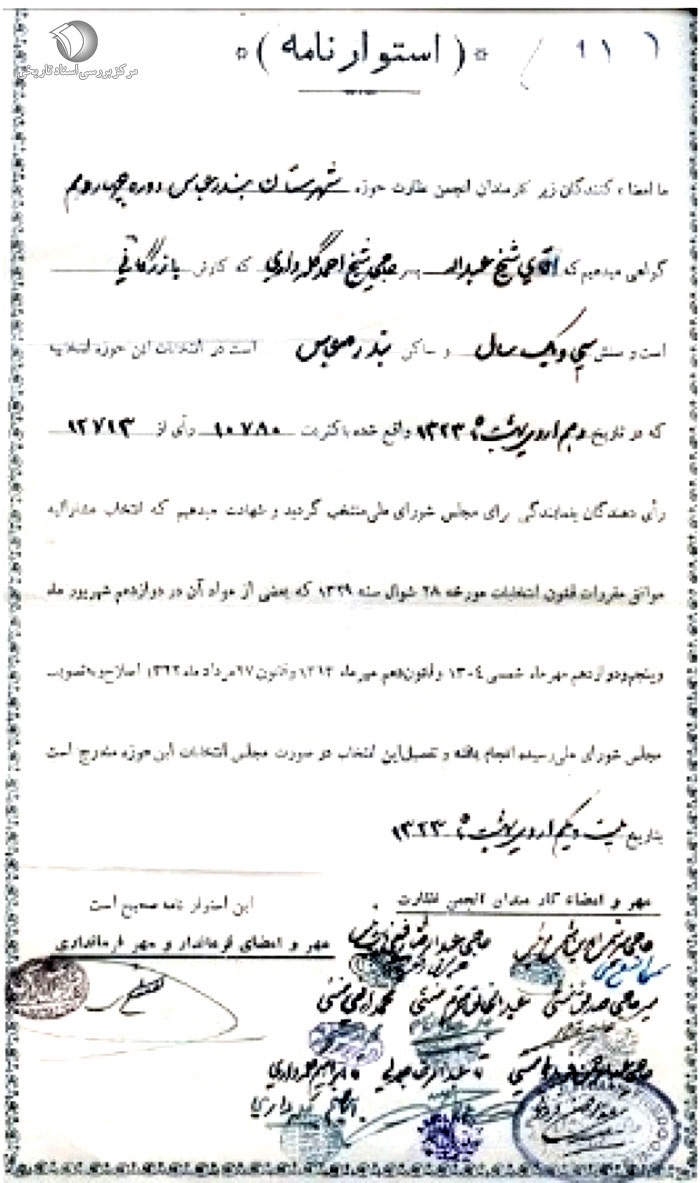 مرکز بررسی اسناد تاریخی
۹۱۶
(استوار نامه)
ما امضاء کنندگان زیر کارمندان انجمن نظارت حوزه شهرستان بندرعباس دوره چهاردهم
گواهی میدهیم که آقای شیخ عبداله پسر حاجی شیخ احمد گله داری که کارش بازرگانی
است و سنش سی و یک سال و ساکن بندرعباس است در انتخابات این حوزه انتخابیه
که در تاریخ دهم اردیبهشت ماه ۱۳۲۳ واقع شده باکثریت ۱۰۷۸۰ رأی از ۱۲۷۱۳
رأی دهندگان بنمایندگی برای مجلس شورای ملی منتخب گردید و شهادت میدهیم که انتخاب مشارالیه
موافق مقررات قانون انتخابات مورخه ۲۸ شوال سنه ۱۳۲۹ که بعضی از مواد آن در دوازدهم شهریور ماه
وپنجم ودوازدهم مهرماه شمسی ۱۳۰۴ وقانون دهم مهرماه ۱۳۱۳ وقانون ۲۷ مرداد ماه اصلاح و بتصویب
مجلس شورای ملی رسیده انجام یافته و تفصیل این انتخاب در صورت مجلس انتخابات این حوزه مندرج است
بتاریخ بیست و یکم اردیبهشت ماه ۱۳۲۳
مهر و امضاء کارمندان انجمن نظارت
این استوار نامه صحیح است
مهر و امضای فرماندار و مهر فرمانداری
حاجی
حاجی عبدال
میر حاجی صدق
عبدالخالق
محمد
ابراهیم گله داری
گله داری